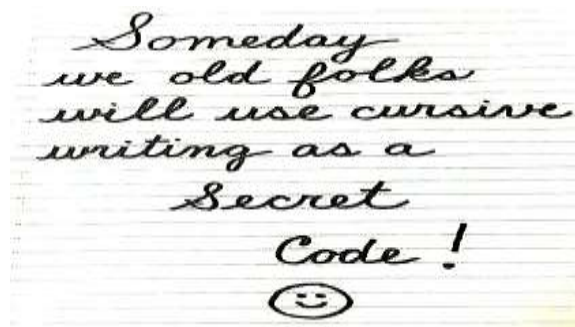 Someday
we old folks
will use cursive
writing as a
Secret
Code !